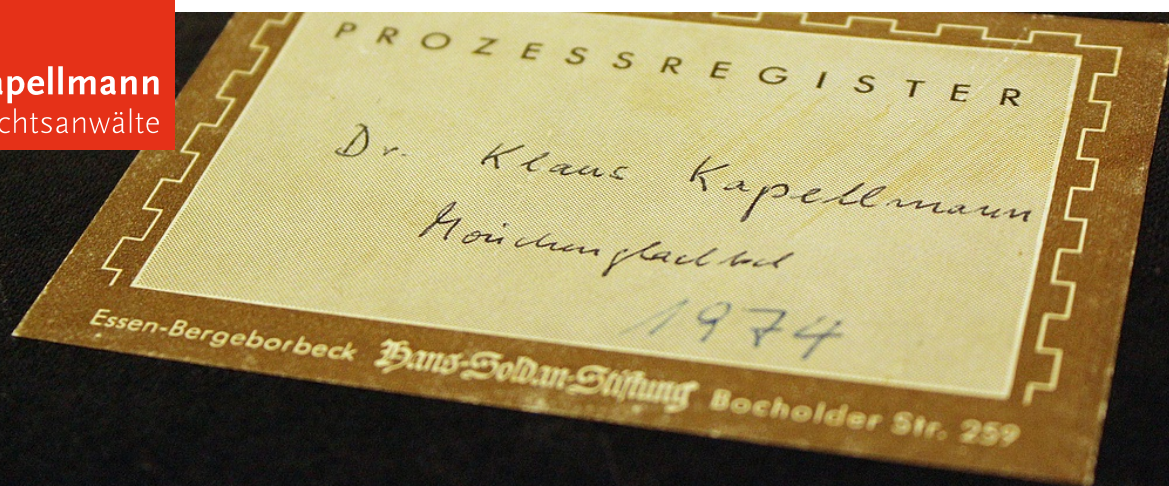 apellmann
chtsanwälte
PROZESSREGISTER
Dr. Klaus Kapellmann
Mönchengladbach
1974
Essen-Bergeborbeck Hans-Soldan-Stiftung Bocholder Str. 259